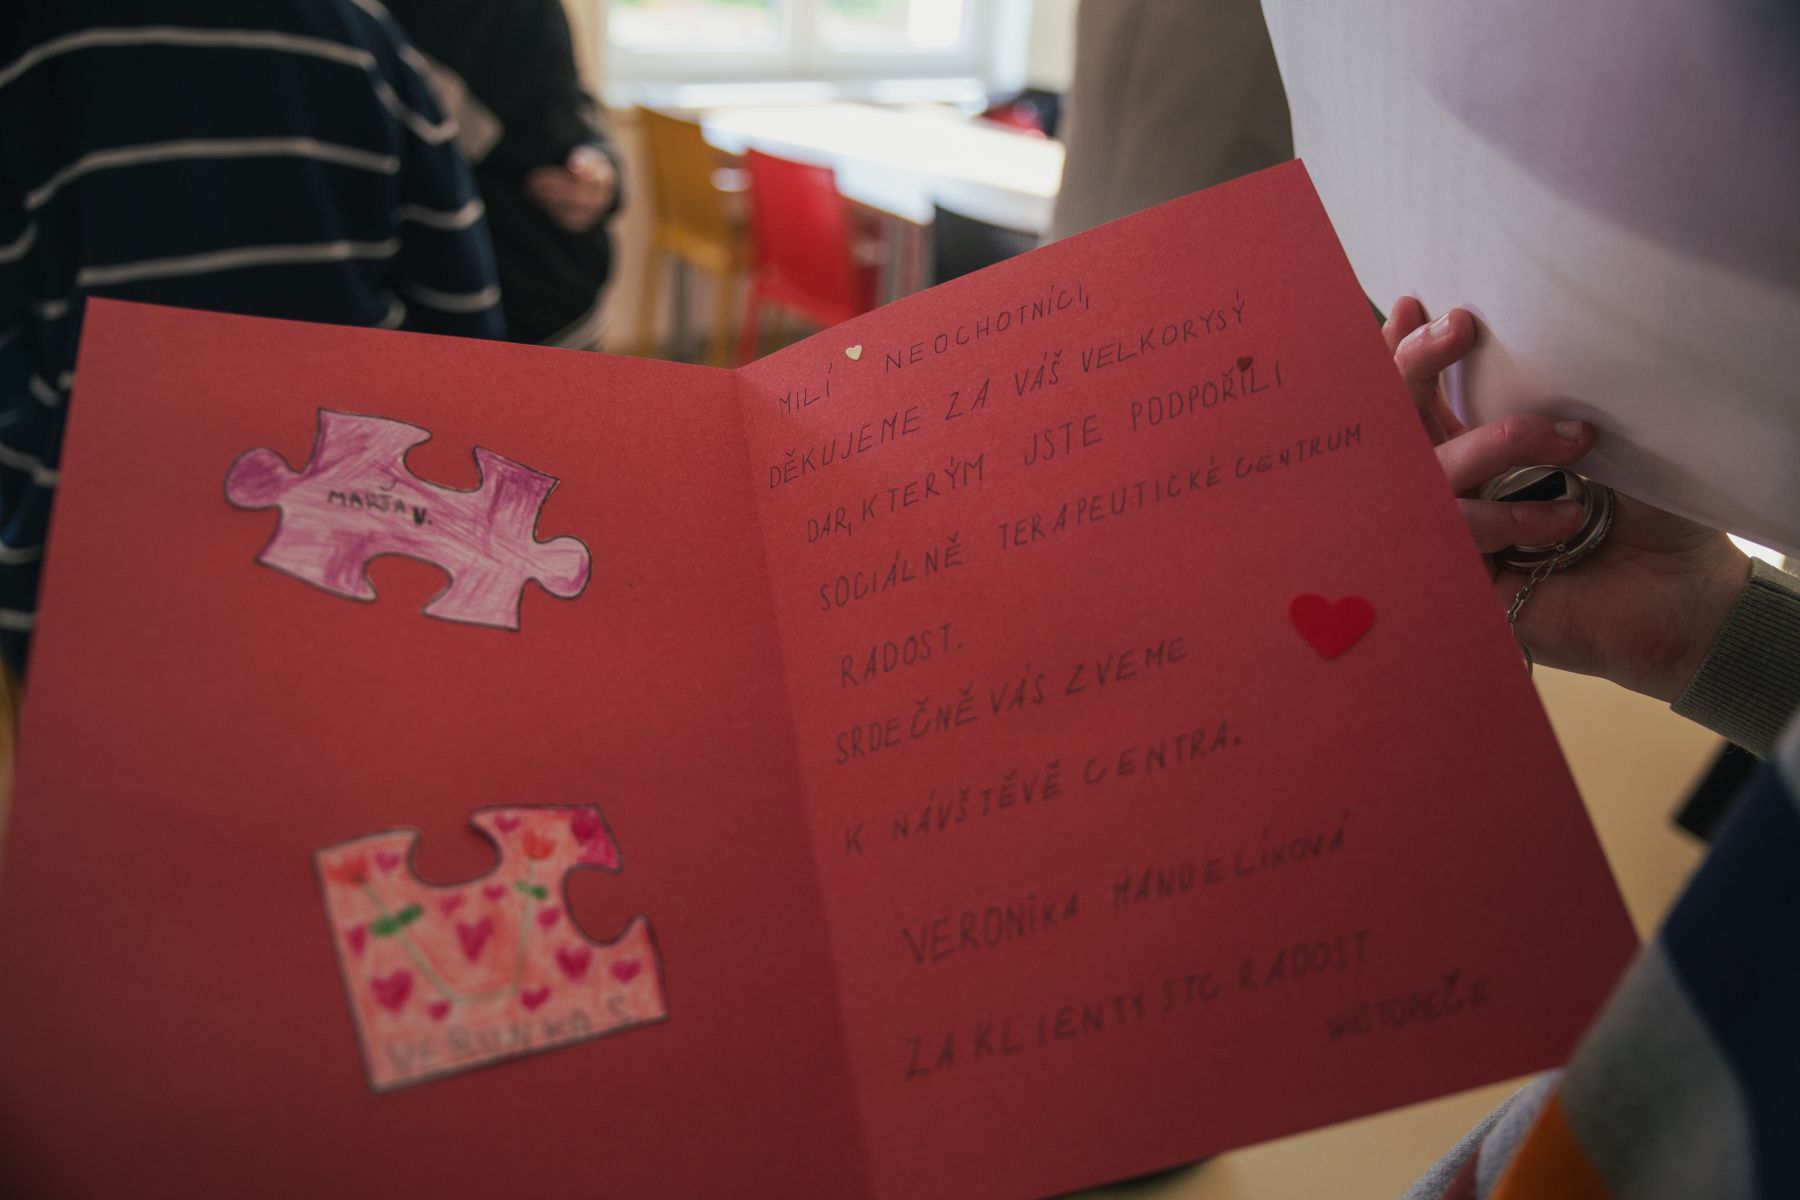 MARŤA V.
VERUNKA S.
MILÍ NEOCHOTNÍCI,
DĚKUJEME ZA VÁŠ VELKORYSÝ
DAR, KTERÝM JSTE PODPOŘILI
SOCIÁLNĚ TERAPEUTICKÉ CENTRUM
RADOST.
SRDEČNĚ VÁS ZVEME
K NÁVŠTĚVĚ CENTRA.
VERONIKA MANDELÍKOVÁ
ZA KLIENTY STC RADOST
HUSTOPEČE